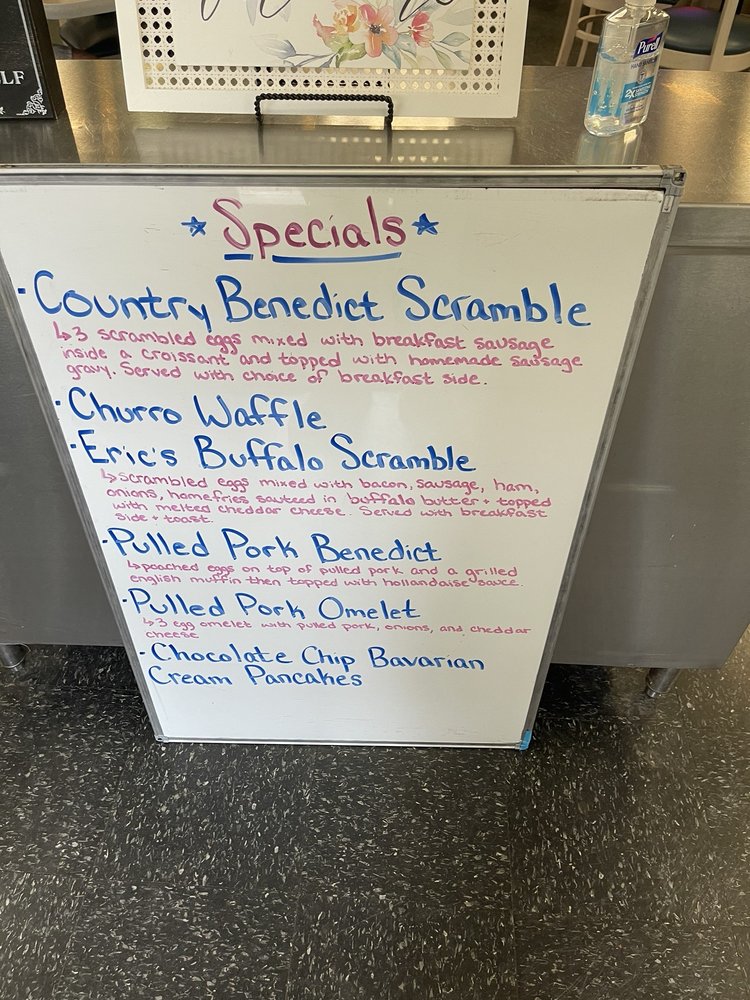 LF
Purell
2X
★ Specials ★
· Country Benedict Scramble
↳ 3 scrambled eggs mixed with breakfast sausage
inside a croissant and topped with homemade sausage
gravy. Served with choice of breakfast side.
· Churro Waffle
· Eric's Buffalo Scramble
↳ scrambled eggs mixed with bacon, sausage, ham,
onions, homefries sauteed in buffalo butter + topped
with melted cheddar cheese. Served with breakfast
side + toast.
· Pulled Pork Benedict
↳ poached eggs on top of pulled pork and a grilled
english muffin then topped with hollandaise sauce.
· Pulled Pork Omelet
↳ 3 egg omelet with pulled pork, onions, and cheddar
cheese
· Chocolate Chip Bavarian
Cream Pancakes